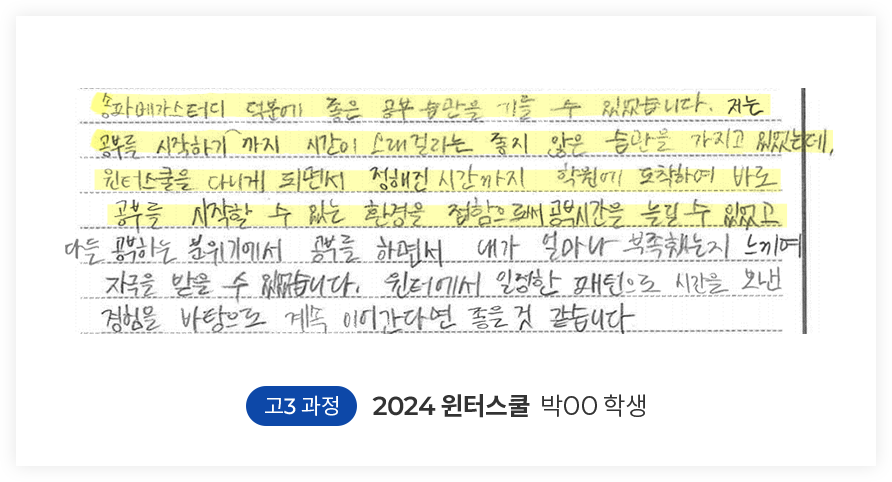 송파메가스터디 덕분에 좋은 공부 습관을 기를 수 있었습니다. 저는
공부를 시작하기까지 시간이 오래걸리는 좋지 않은 습관을 가지고 있었는데,
윈터스쿨을 다니게 되면서 정해진 시간까지 학원에 도착하여 바로
공부를 시작할 수 있는 환경을 접함으로써 공부시간을 늘릴 수 있었고
다들 공부하는 분위기에서 공부를 하면서 내가 얼마나 부족했는지 느끼며
자극을 받을 수 있었습니다. 윈터에서 일정한 패턴으로 시간을 보낸
경험을 바탕으로 계속 이어간다면 좋을 것 같습니다
고3 과정 2024 윈터스쿨 박OO 학생